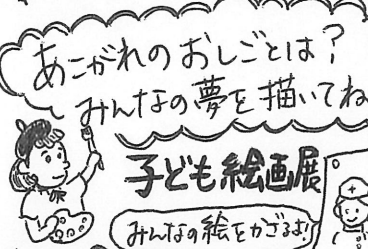 あこがれのおしごとは？
みんなの夢を描いてね
子ども絵画展
みんなの絵をかざるよ!